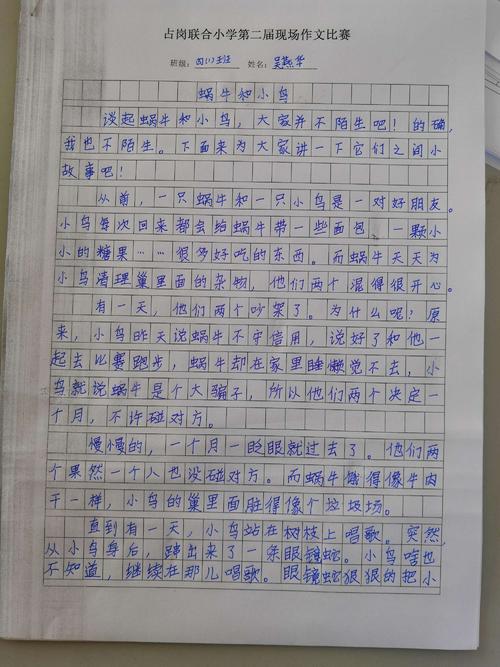 占岗联合小学第二届现场作文比赛
班级：四(1)班 姓名：吴燕华
蜗牛和小鸟
谈起蜗牛和小鸟，大家并不陌生吧！的确，
我也不陌生。下面来为大家讲一下它们之间小
故事吧！
从前，一只蜗牛和一只小鸟是一对好朋友。
小鸟每次回来都会给蜗牛带一些面包 一颗小
小的糖果……很多好吃的东西。而蜗牛天天为
小鸟清理巢里面的杂物，他们两个混得很开心。
有一天，他们两个吵架了。为什么呢？原
来，小鸟昨天说蜗牛不守信用，说好了和他一
起去比赛跑步，蜗牛却在家里睡懒觉不去，小
鸟就说蜗牛是个大骗子，所以他们两个决定一
个月，不许碰对方。
慢慢的，一个月一眨眼就过去了。他们两
个果然一个人也没碰对方。而蜗牛饿得像牛肉
干一样，小鸟的巢里面脏得像个垃圾场。
直到有一天，小鸟站在树枝上唱歌。突然，
从小鸟身后，蹿出来了一条眼镜蛇。小鸟啥也
不知道，继续在那儿唱歌。眼镜蛇狠狠的把小